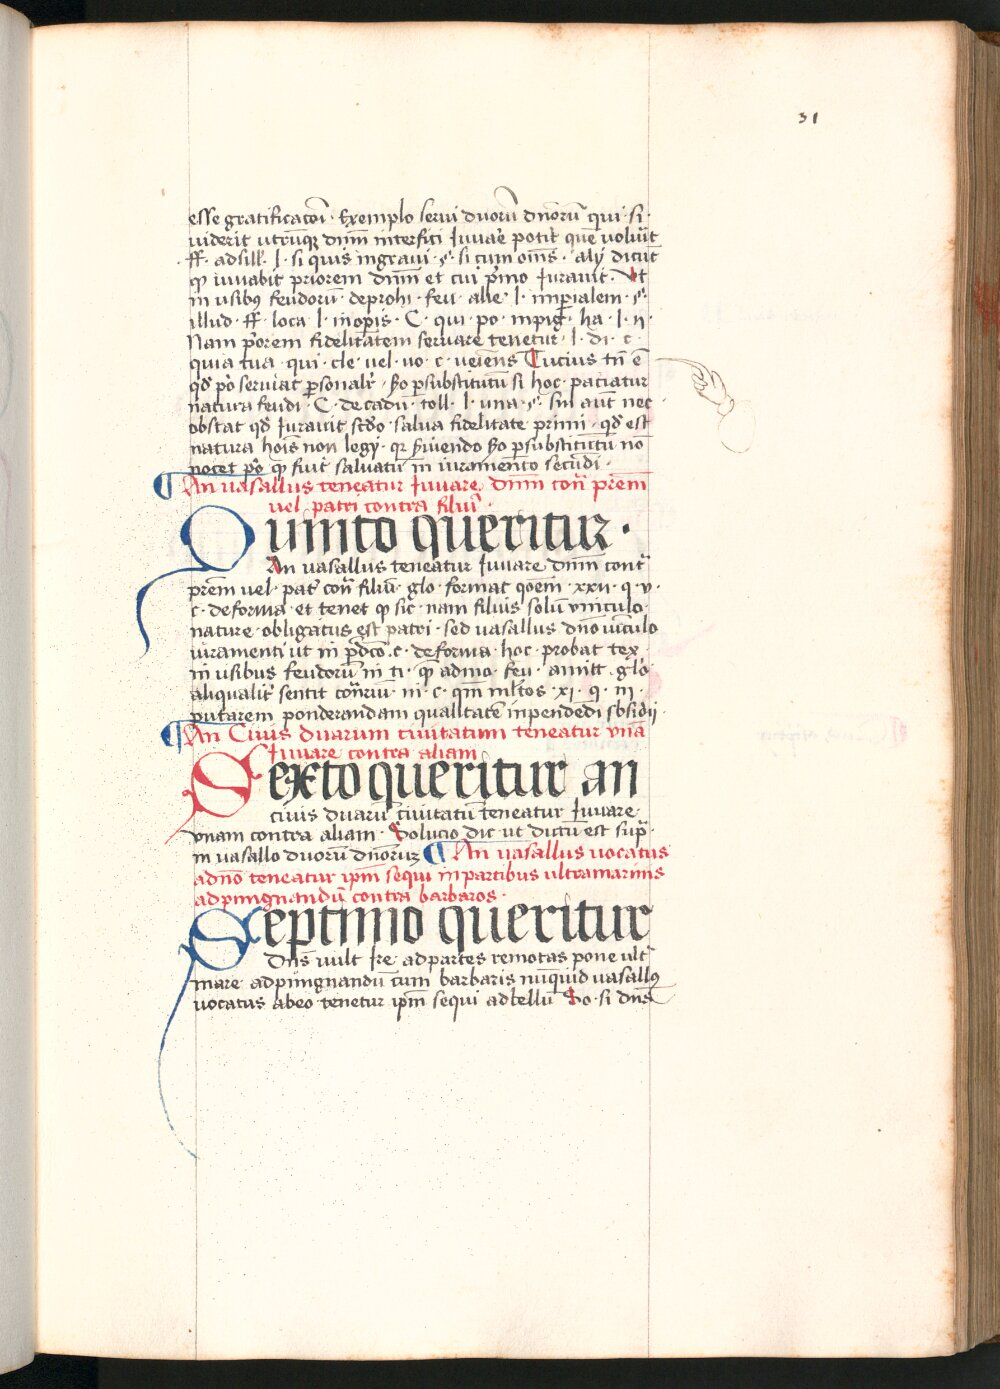 31
esse gratificatoꝛ̄ · Exemplo serui duorū dn̄orū qui · si ·
uiderit utrūqꝫ dn̄m interfici Iuuar̄e potit̄ quē uoluīt
ff · adsill̄ · l · si quis ingraui · §· si cum oīns · alij dicūt
ꝙ iuuabit priorem dn̄m et cui pͥmo Iurauit · Vt
in usibꝰ feudorū · deprohi · feu · alie · l · imꝑialem · §·
illud · ff · loca · l · inopis · C · qui · po · inpig̅ · ha · l · ii ·
Nam pͥorem fidelitatem seruare tenetur · l · di · c ·
quia tua · qui · cle · uel · uo · c · ueiens Tucius tn̄ ē
qd̄ pͦ seruiat ꝑsonalr̄ · So ꝑsubstitutū si hoc · patiatur
natura feudi · C · de cadu · toll · l · una · §· sin aūt nec ·
obstat qd̄ Iurauit scd̄o · salua fidelitate primi · qd̄ est
natura hoīs non legꝫ · qꝛ seruiendo So ꝑsubstitutū nō
nocet pͦ ꝙ fuit saluatū in iuramento secūdi ·
¶ An uasallus teneatur Iuuare dn̄m cont̄ꝰ pr̄em
uel patri contra filiū ·
Quinto queritur ·
An uasallus teneatur Iuuare dn̄m cont̄ꝰ
pr̄em uel · pat̄ con̄ filiū · glo · format qōem · xxii · q · v ·
c · de forma · et tenet ꝙ sic · nam filius solū vinculo ·
nature · obligatus est patri · sed uasallus dn̄o uīculo
iuramenti ut in pd̄co · c · de forma · hoc · probat tex
in usibus feudorū in ti · qͣ admo · feu · amitt · glo ·
aliqualit̄ sentit con̄riū · in · c · qm̄ ml̄tos · xi · q · iii ·
putarem ponderandam qualitatē inpendēdi sbsidij ·
¶ An Ciuis duarum ciuitatum teneatur vnā
Iuuare contra aliam
Sexto queritur an
ciuis duarū ciuitatū teneatur Iuuare ·
vnam contra aliam · Solucio dic · ut dictū est supͣ ·
in uasallo duorū dn̄orum ¶ An uasallus uocatus
adn̄o teneatur ip̄m sequi inpartibus ultramarinis
adpungnandū contra barbaros ·
Septimo queritur
Dn̄s uult Ire adpartes remotas pone ultͣ
mare adpungnandū cum barbaris nūquid uasallꝰ
uocatus abeo tenetur ip̄m sequi adbellū So · si dn̄s